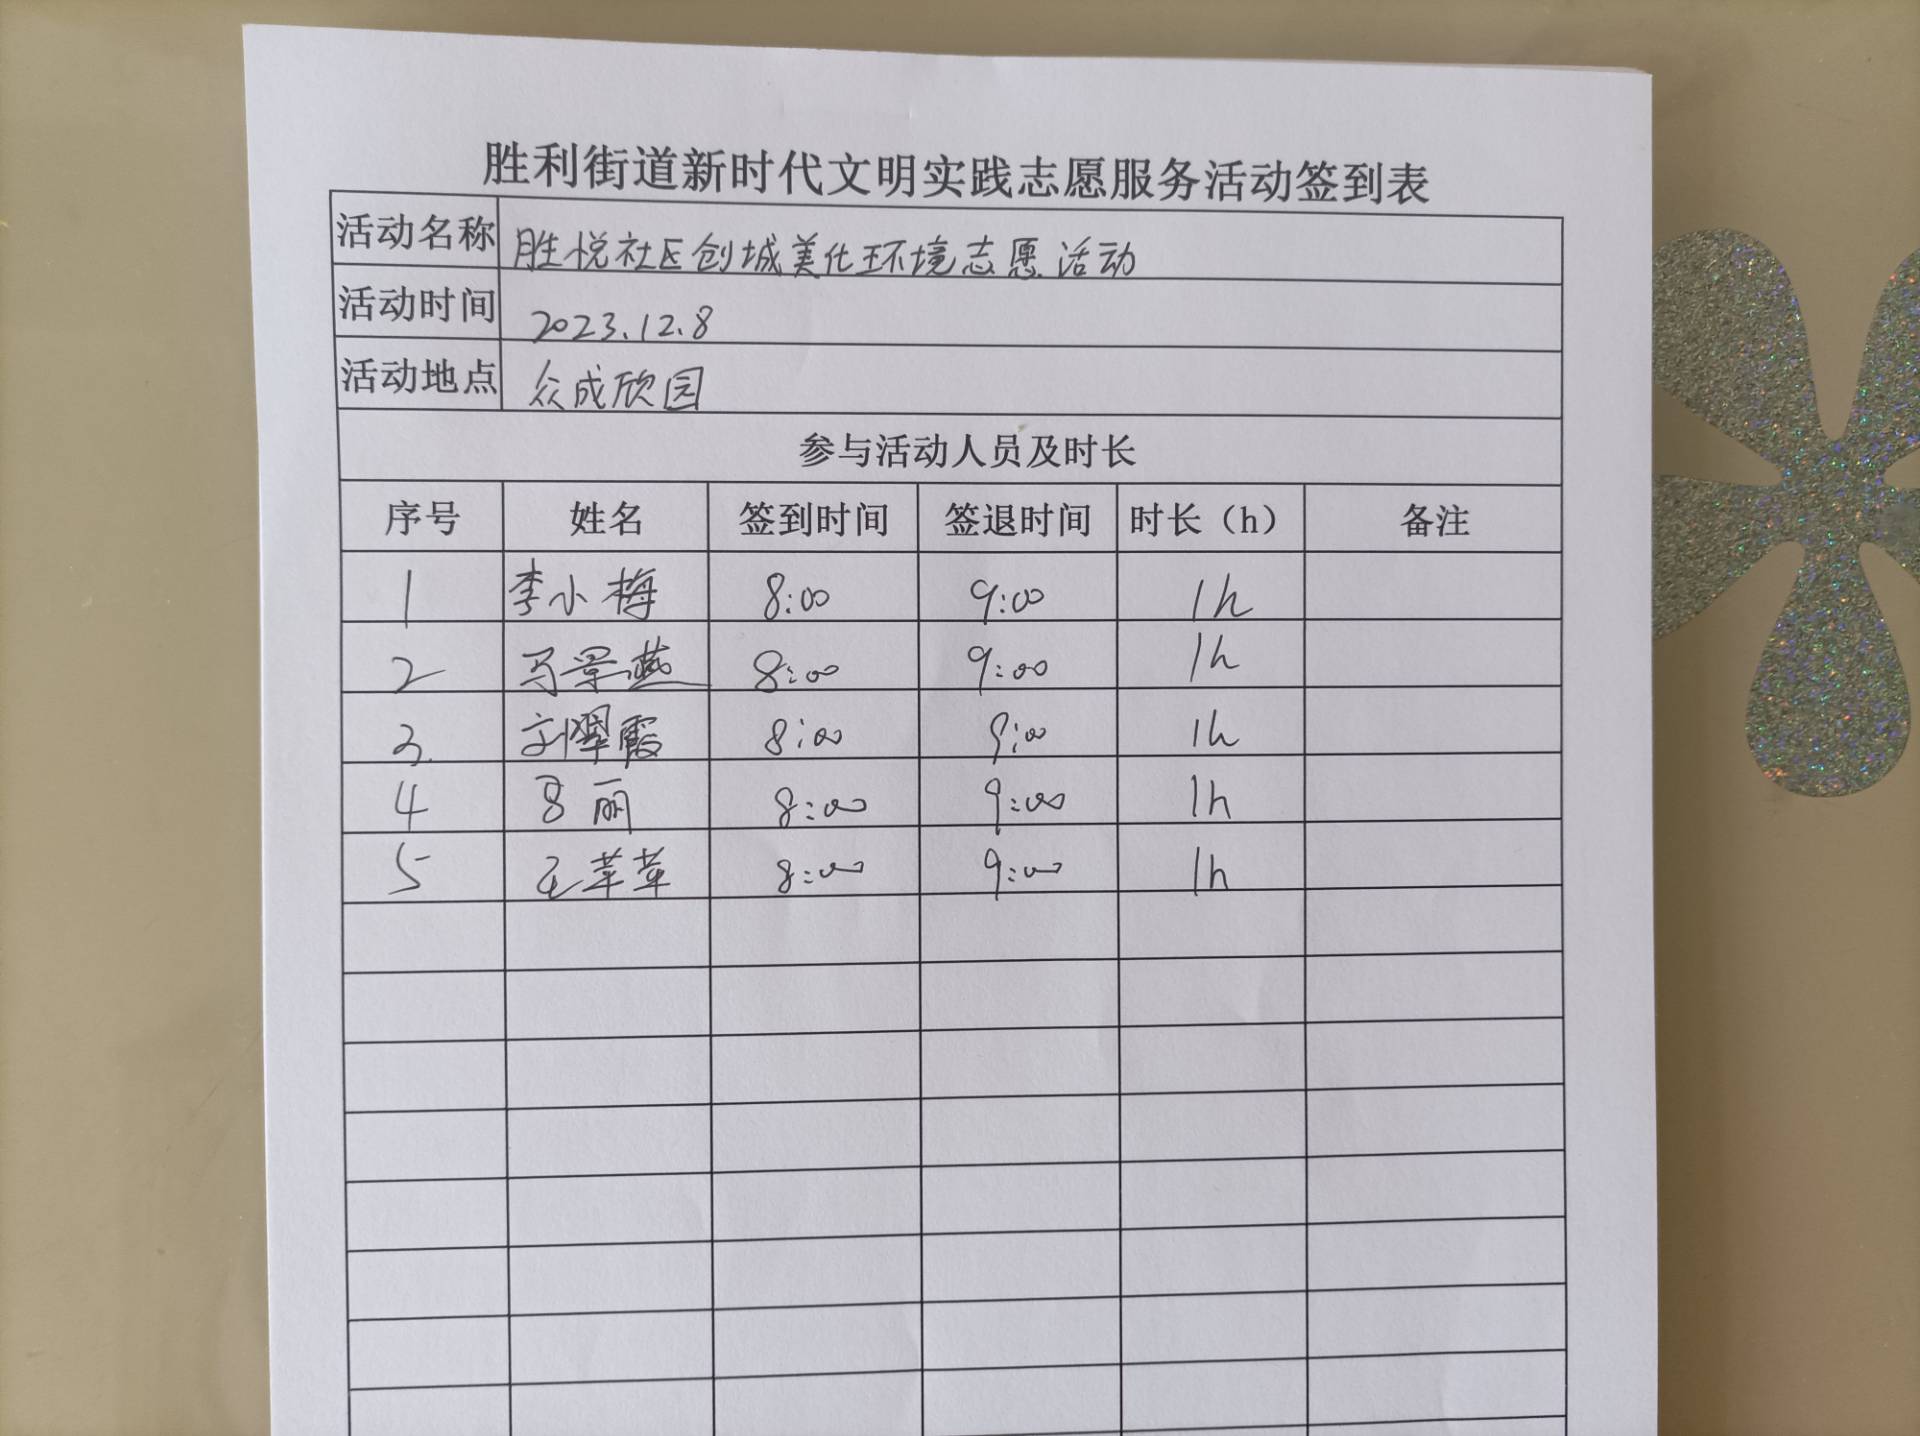 胜利街道新时代文明实践志愿服务活动签到表
活动名称 胜悦社区创城美化环境志愿活动
活动时间 2023.12.8
活动地点 众成欣园
参与活动人员及时长
序号 姓名 签到时间 签退时间 时长（h） 备注
1 李小梅 8:00 9:00 1h
2 马景燕 8:00 9:00 1h
3 刘翠霞 8:00 9:00 1h
4 丽 8:00 9:00 1h
5 王苹苹 8:00 9:00 1h